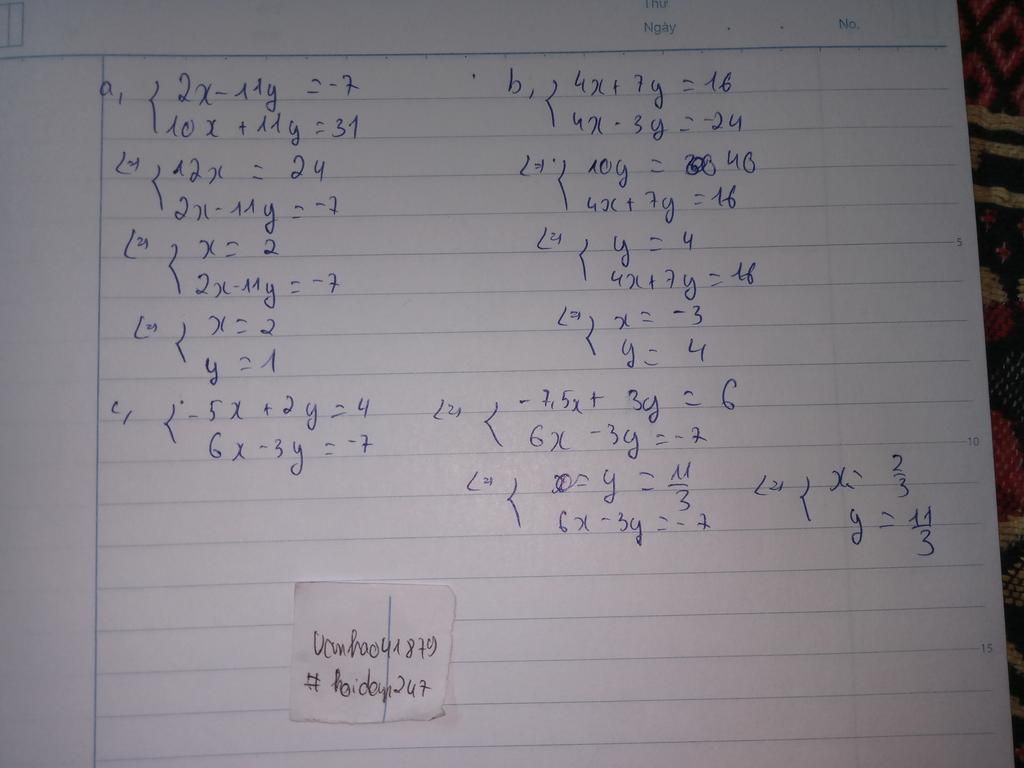 Thứ
Ngày . . No.
a, { 2x - 11y = -7
10x + 11y = 31
<=> { 12x = 24
2x - 11y = -7
<=> { x = 2
2x - 11y = -7
<=> { x = 2
y = 1
b, { 4x + 7y = 16
4x - 3y = -24
<=> { 10y = 40
4x + 7y = 16
<=> { y = 4
4x + 7y = 16
<=> { x = -3
y = 4
c, { -5x + 2y = 4
6x - 3y = -7
<=> { -7,5x + 3y = 6
6x - 3y = -7
<=> { y = 11/3
6x - 3y = -7
<=> { x = 2/3
y = 11/3
5
10
15
# hoidap247